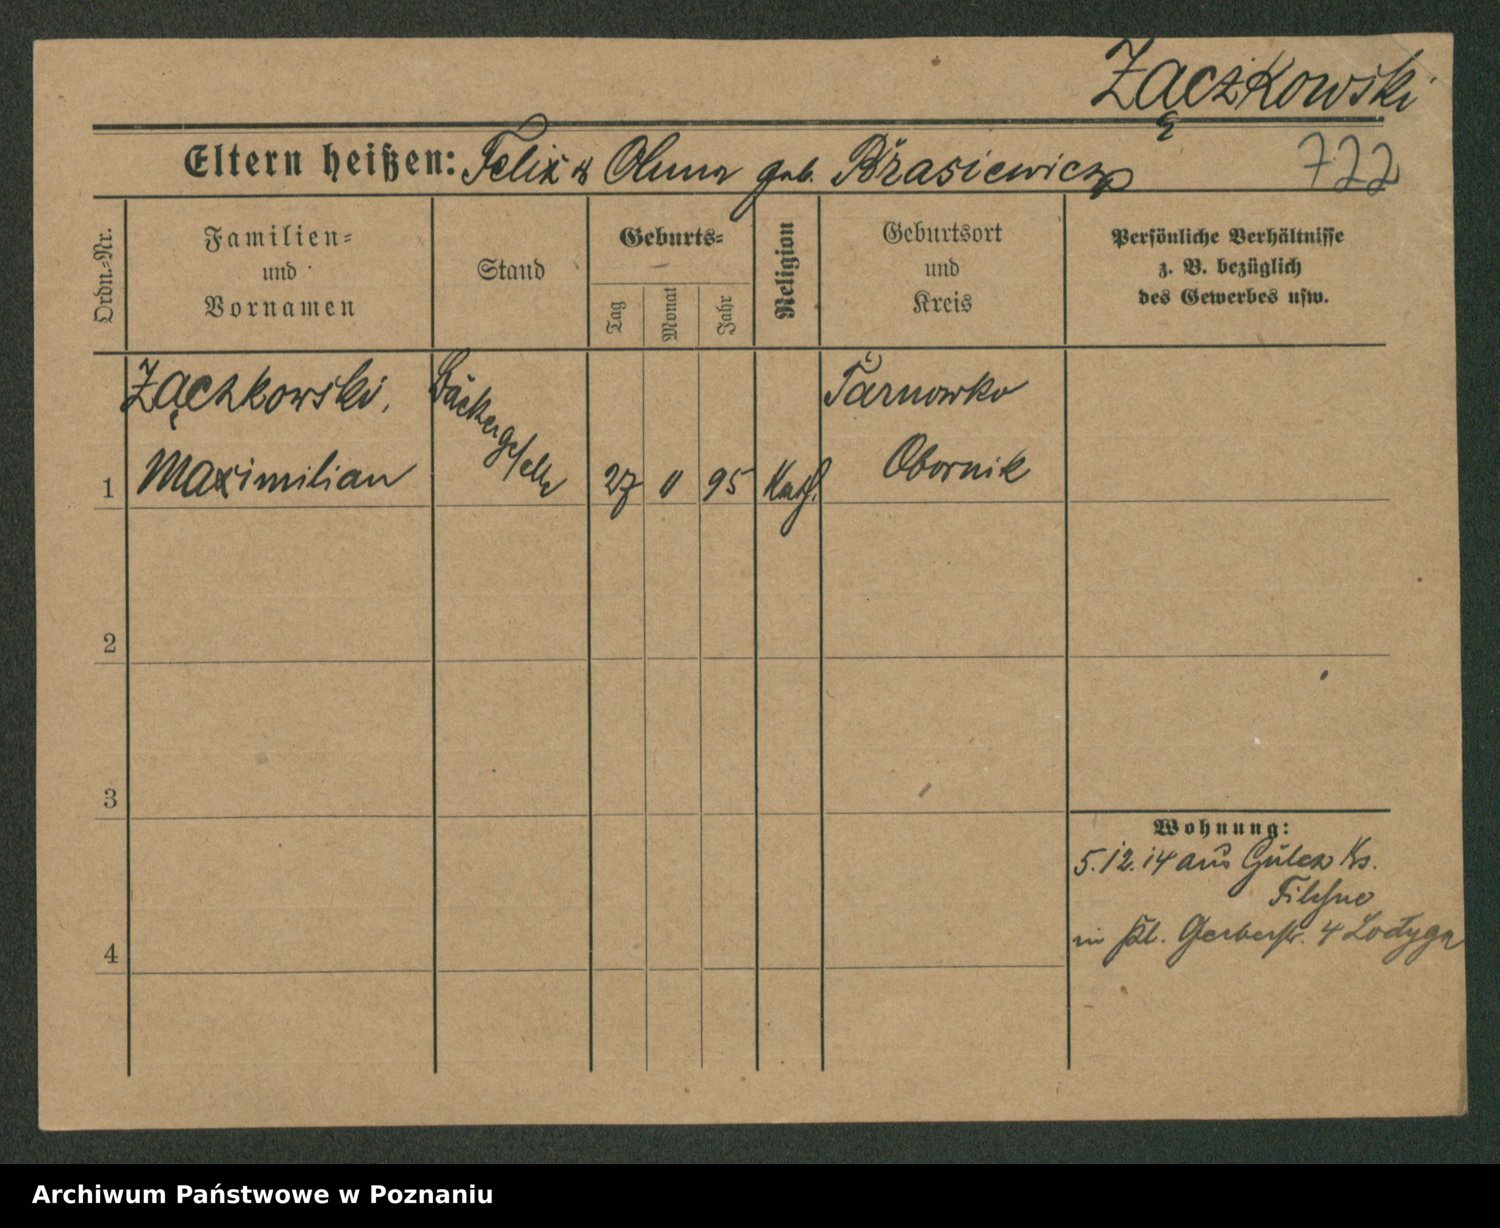 Zączkowski
Eltern heißen: Felix & Anna geb. Brasiewicz
722
Ordn.-Nr.
Familien-
und
Vornamen
Stand
Geburts-
Tag
Monat
Jahr
Religion
Geburtsort
und
Kreis
Persönliche Verhältnisse
z. B. bezüglich
des Gewerbes usw.
Zączkowski,
Maximilian
Bäckergeselle
1
27
95
Kath.
Tarnowko
Obornik
2
3
4
Wohnung:
5.12.14 aus Gulcz Ks.
Filehne
in Gerberstr. 4 Lodyga
Archiwum Państwowe w Poznaniu